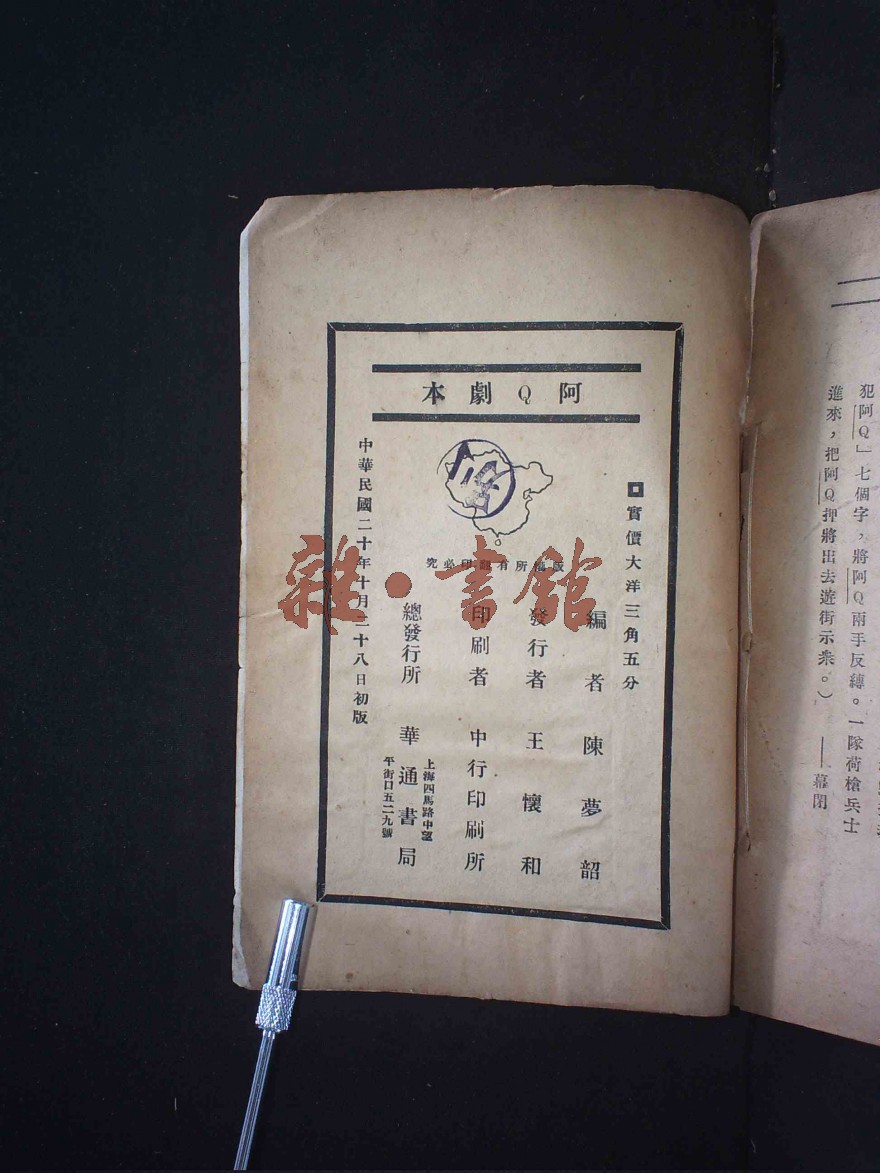 阿Q劇本
實價大洋三角五分
版權所有翻印必究
編者 陳夢韶
發行者 王懷和
印刷者 中行印刷所
總發行所 華通書局
上海四馬路中望
平街口五二九號
中華民國二十年十月二十八日初版
雜·書館
犯阿Q」七個字，將阿Q兩手反縛。一隊荷槍兵士
進來，把阿Q押將出去遊街示衆。）——幕閉